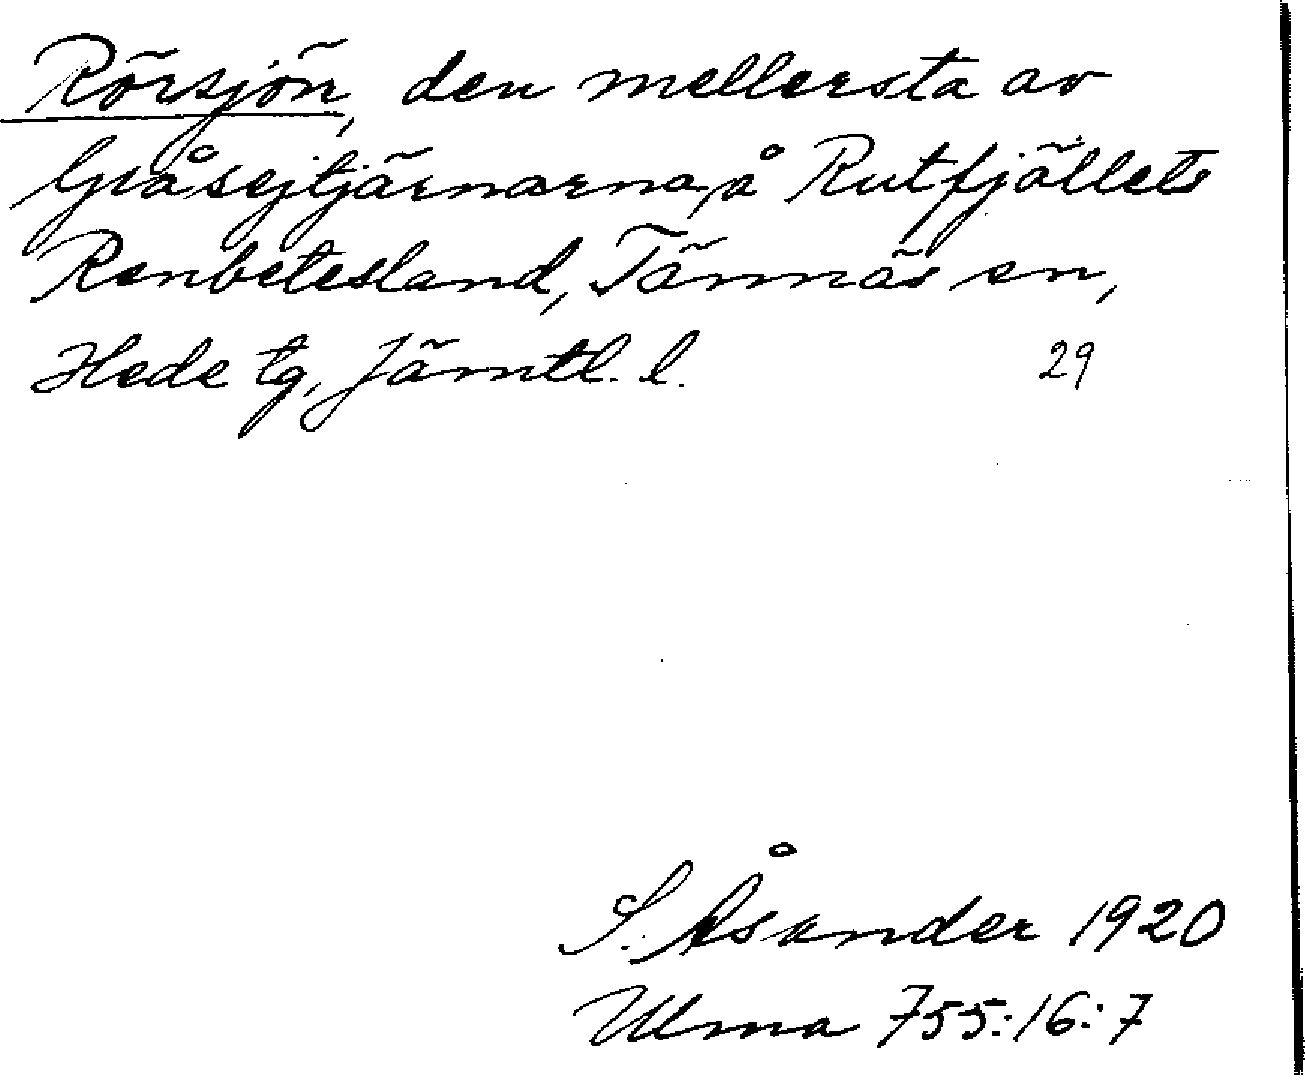 Rörsjön, den mellersta av
Gråsejtjärnarna å Rutfjällets
Renbetesland, Tännäs sn,
Hede tg, Jämtl. l. 29
S. Åsander 1920
Ulma 755:16:7